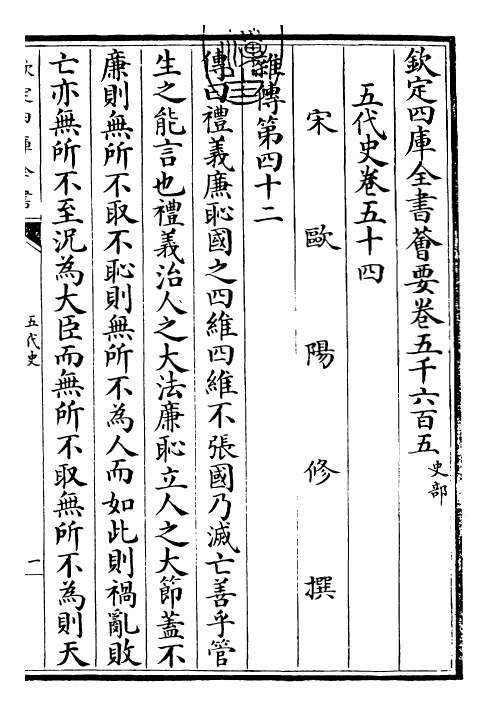 欽定四庫全書薈要卷五千六百五 史部
五代史卷五十四
宋 歐 陽 修 撰
雜傳第四十二
傳曰禮義廉恥國之四維四維不張國乃滅亡善乎管
生之能言也禮義治人之大法廉恥立人之大節蓋不
廉則無所不取不恥則無所不為人而如此則禍亂敗
亡亦無所不至況為大臣而無所不取無所不為則天
欽定四庫全書
五代史
一